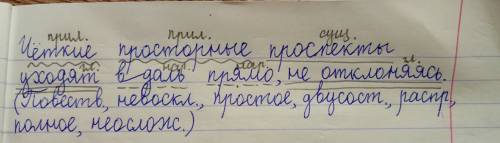 прил. прил. сущ.
Чёткие просторные проспекты
гл. нар. нар. гл.
уходят в даль прямо, не отклоняясь.
(Повеств, невоскл., простое, двусост., распр,
полное, неослож.)